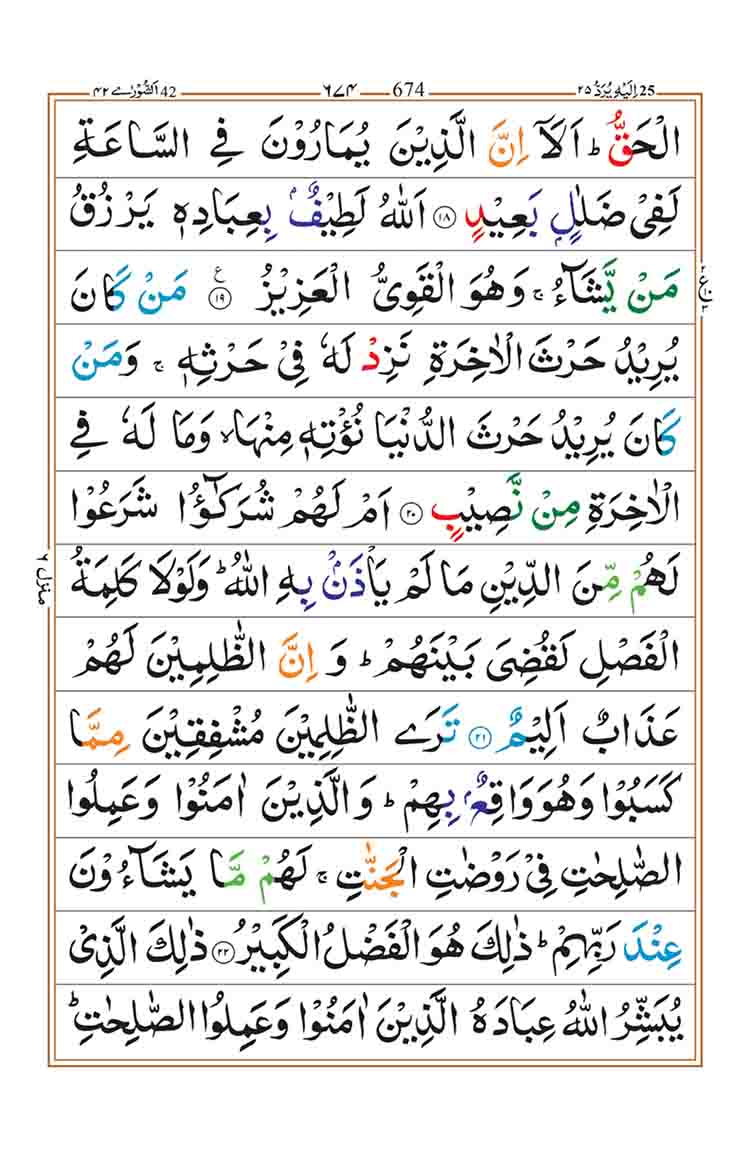 25 اِلَیْهِ یُرَدُّ ٢٥ 674 ٦٧٤ 42 اَلشُّوْرٰی ٤٢
الْحَقُّ ؕ اَلَاۤ اِنَّ الَّذِیْنَ یُمَارُوْنَ فِی السَّاعَةِ
لَفِیْ ضَلٰلٍۭ بَعِیْدٍ ۝١٨ اَللّٰهُ لَطِیْفٌۢ بِعِبَادِهٖ یَرْزُقُ
مَنْ یَّشَآءُ ۚ وَهُوَ الْقَوِیُّ الْعَزِیْزُ ۝١٩ ع مَنْ كَانَ
یُرِیْدُ حَرْثَ الْاٰخِرَةِ نَزِدْ لَهٗ فِیْ حَرْثِهٖ ۚ وَمَنْ
كَانَ یُرِیْدُ حَرْثَ الدُّنْیَا نُؤْتِهٖ مِنْهَا ۙ وَمَا لَهٗ فِی
الْاٰخِرَةِ مِنْ نَّصِیْبٍ ۝٢٠ اَمْ لَهُمْ شُرَكٰٓؤُا شَرَعُوْا
لَهُمْ مِّنَ الدِّیْنِ مَا لَمْ یَاْذَنْۢ بِهِ اللّٰهُ ؕ وَلَوْلَا كَلِمَةُ
الْفَصْلِ لَقُضِیَ بَیْنَهُمْ ؕ وَ اِنَّ الظّٰلِمِیْنَ لَهُمْ
عَذَابٌ اَلِیْمٌ ۝٢١ تَرَی الظّٰلِمِیْنَ مُشْفِقِیْنَ مِمَّا
كَسَبُوْا وَهُوَ وَاقِعٌۢ بِهِمْ ؕ وَالَّذِیْنَ اٰمَنُوْا وَعَمِلُوا
الصّٰلِحٰتِ فِیْ رَوْضٰتِ الْجَنّٰتِ ۚ لَهُمْ مَّا یَشَآءُوْنَ
عِنْدَ رَبِّهِمْ ؕ ذٰلِكَ هُوَ الْفَضْلُ الْكَبِیْرُ ۝٢٢ ذٰلِكَ الَّذِیْ
یُبَشِّرُ اللّٰهُ عِبَادَهُ الَّذِیْنَ اٰمَنُوْا وَعَمِلُوا الصّٰلِحٰتِ ؕ
منزل ٦